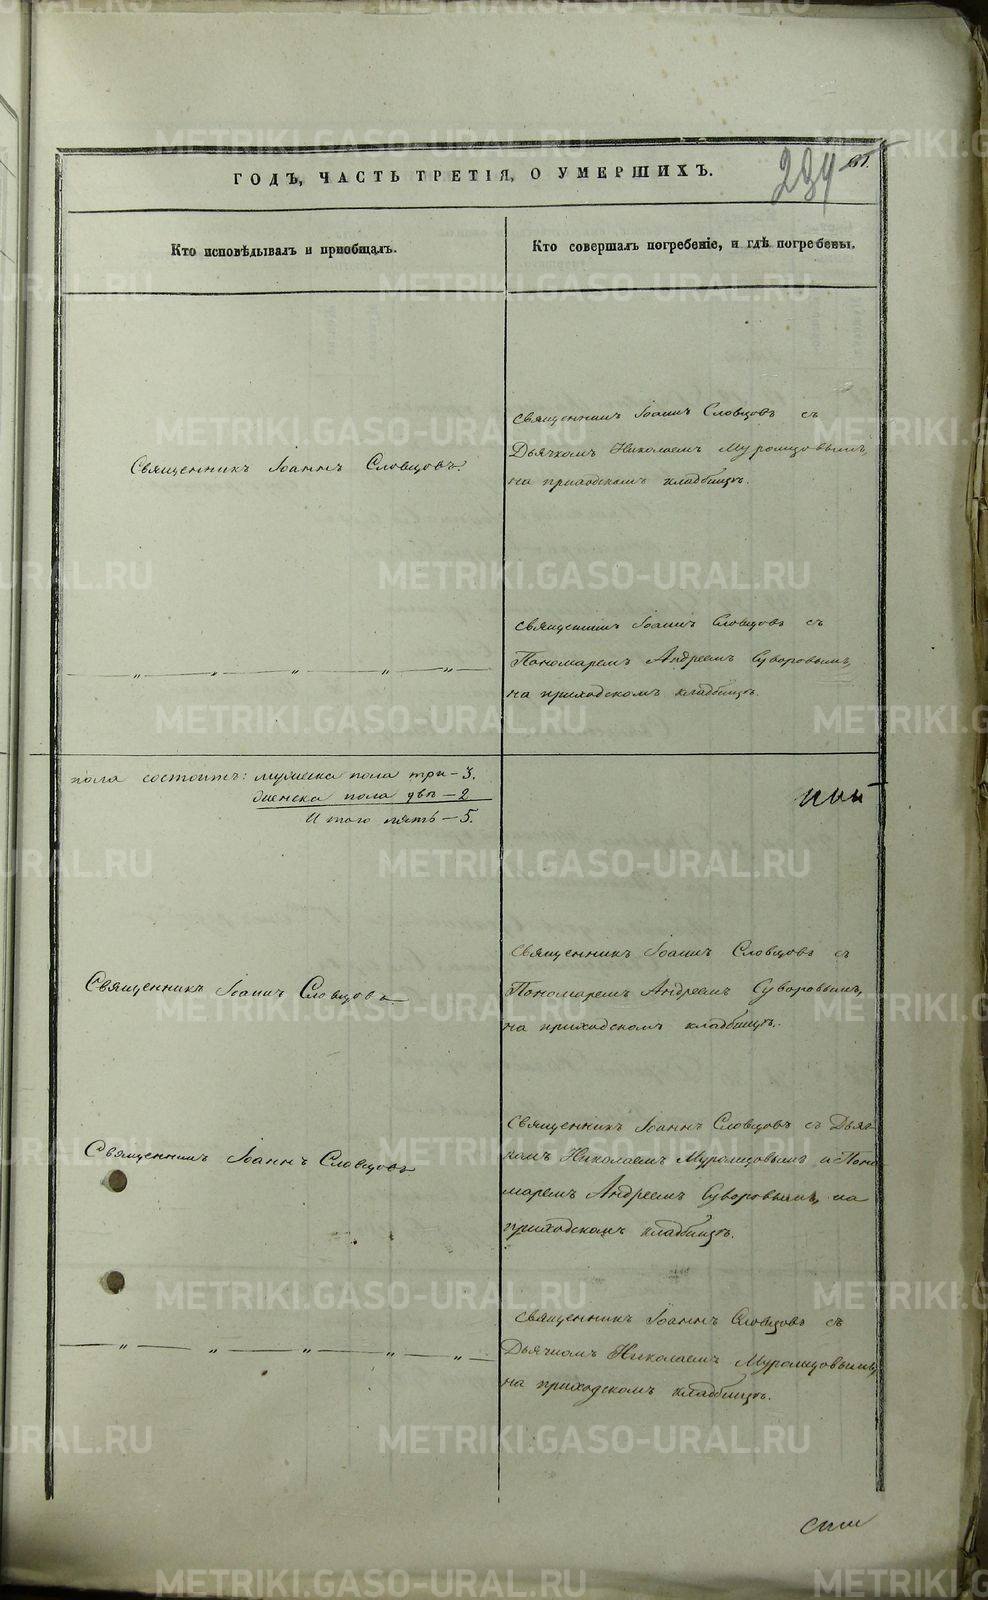 ГОДЪ, ЧАСТЬ ТРЕТІЯ, О УМЕРШИХЪ.
234
Кто исповѣдывалъ и пріобщалъ.
Кто совершалъ погребеніе, и гдѣ погребены.
Священникъ Іоаннъ Словцовъ съ
Дьячкомъ Николаемъ Муромцовымъ,
на приходскомъ кладбищѣ.
Священникъ Іоаннъ Словцовъ.
Священникъ Іоаннъ Словцовъ съ
Пономаремъ Андреемъ Суворовымъ,
на приходскомъ кладбищѣ.
— „ — „ — „ — „ — „ —
пола состоитъ: мужеска пола три – 3.
женска пола двѣ – 2
Итого пять – 5.
Священникъ Іоаннъ Словцовъ съ
Пономаремъ Андреемъ Суворовымъ,
на приходскомъ кладбищѣ.
Священникъ Іоаннъ Словцовъ
Священникъ Іоаннъ Словцовъ съ Дьяч-
комъ Николаемъ Муромцовымъ и Поно-
маремъ Андреемъ Суворовымъ, на
приходскомъ кладбищѣ.
Священникъ Іоаннъ Словцовъ
Священникъ Іоаннъ Словцовъ съ
Дьячкомъ Николаемъ Муромцовымъ,
на приходскомъ кладбищѣ.
— „ — „ — „ — „ — „ —
METRIKI.GASO-URAL.RU